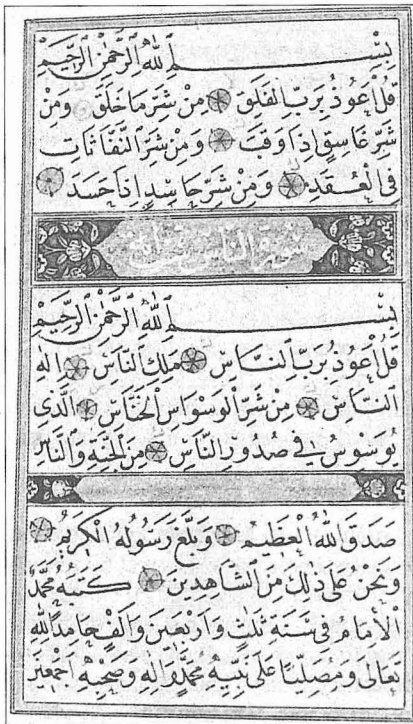 بِسْمِ ٱللّٰهِ ٱلرَّحْمٰنِ ٱلرَّحِيمِ
قُلْ أَعُوذُ بِرَبِّ ٱلْفَلَقِ مِنْ شَرِّ مَا خَلَقَ وَمِنْ
شَرِّ غَاسِقٍ إِذَا وَقَبَ وَمِنْ شَرِّ ٱلنَّفَّاثَاتِ
فِى ٱلْعُقَدِ وَمِنْ شَرِّ حَاسِدٍ إِذَا حَسَدَ
سورة الناس
بِسْمِ ٱللّٰهِ ٱلرَّحْمٰنِ ٱلرَّحِيمِ
قُلْ أَعُوذُ بِرَبِّ ٱلنَّاسِ مَلِكِ ٱلنَّاسِ إِلٰهِ
ٱلنَّاسِ مِنْ شَرِّ ٱلْوَسْوَاسِ ٱلْخَنَّاسِ ٱلَّذِى
يُوَسْوِسُ فِى صُدُورِ ٱلنَّاسِ مِنَ ٱلْجِنَّةِ وَٱلنَّاسِ
صَدَقَ ٱللّٰهُ ٱلْعَظِيمُ وَبَلَّغَ رَسُولُهُ ٱلْكَرِيمُ
وَنَحْنُ عَلَى ذٰلِكَ مِنَ ٱلشَّاهِدِينَ كَتَبَهُ مُحَمَّدٌ
ٱلْإِمَامُ فِى سَنَةِ ثَلٰثٍ وَأَرْبَعِينَ وَأَلْفٍ حَامِدًا لِلّٰهِ
تَعَالَى وَمُصَلِّيًا عَلَى نَبِيِّهِ مُحَمَّدٍ وَآلِهِ وَصَحْبِهِ أَجْمَعِينَ